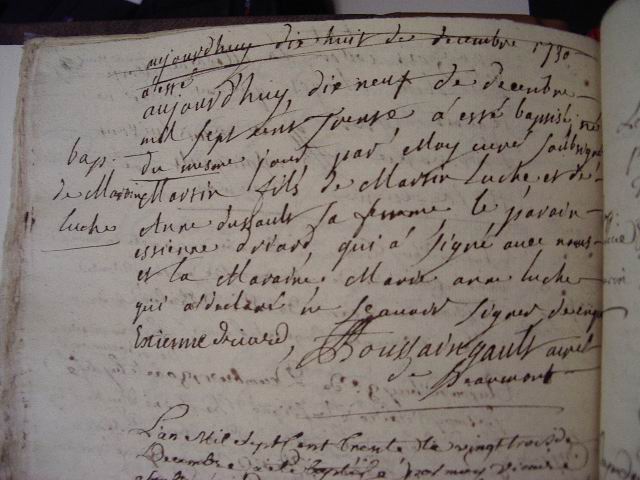 aujourdhuy dix huit de decembre 1730
a esté
aujourdhuy, dix neuf de decembre
mil sept cent trente a esté baptisé, né
du mesme jour par Moy curé soubsigné
bap. de Martin luche
Martin fils de Martin luche et de
Anne dussault sa femme le parain
estienne driard, qui a signé avec nous
et la Maraine Marie anne luche
qui a declaré ne scavoir signer
Estienne driard, Boussaingault curé
de Beaumont
L'an Mil Sept Cent trente le vingt trois de
Decembre a été baptisé par moy